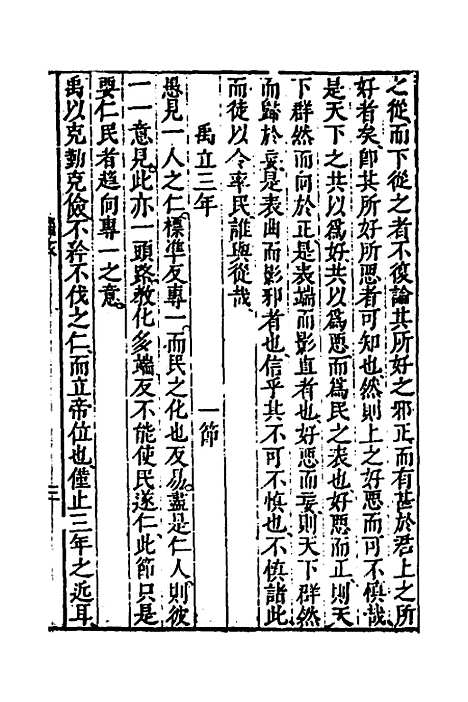 之從而下從之者不復論其所好之邪正而有甚於君上之所
好者矣卽其所好所惡者可知也然則上之好惡而可不慎哉
是天下之共以爲好共以爲惡而爲民之表也好惡而正則天
下群然而向於正是表端而影直者也好惡而妄則天下群然
而歸於妄是表曲而影邪者也信乎其不可不慎也不慎諸此
而徒以令率民誰與從哉
禹立三年 一節
愚見一人之仁標準反專一而民之化也反易盡是仁人則彼
一一意見此亦一頭路教化多端反不能使民遂仁此節只是
要仁民者趋向專一之意
禹以克勤克儉不矜不伐之仁而立帝位也僅止三年之近耳